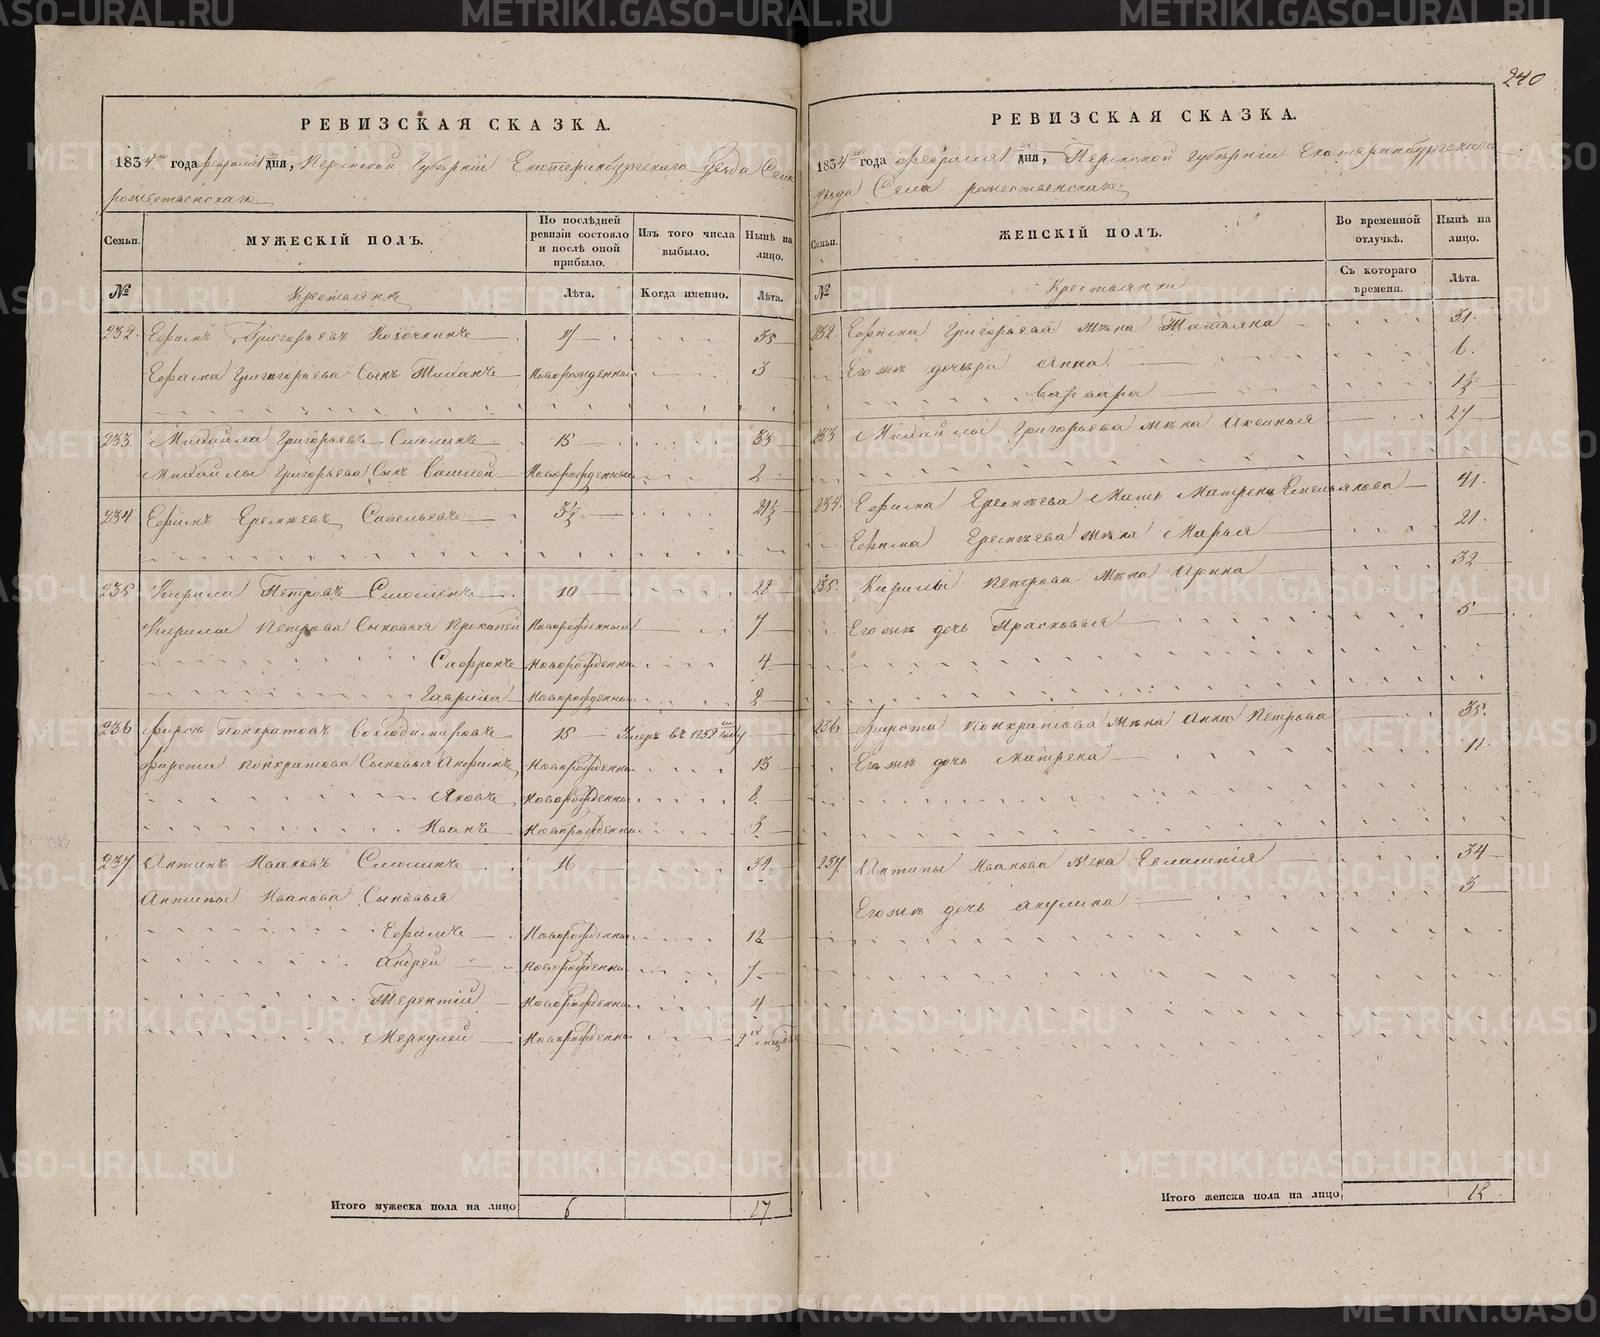 240
РЕВИЗСКАЯ СКАЗКА.
1834го года февраля 1 дня, Пермской Губерніи Екатеринбургскаго уезда Села
рожественскаго
Семьи.
МУЖЕСКІЙ ПОЛЪ.
По послѣдней ревизіи состояло и послѣ оной прибыло.
Изъ того числа выбыло.
Нынѣ на лицо.
№
Крестьянъ
Лѣта.
Когда именно.
Лѣта.
232. Ефимъ Григорьевъ 17 35
Ефима Григорьева Сынъ Новорожденный 3
233. Михайла Григорьевъ Смолинъ 15 33
Михайлы Григорьева Сынъ Новорожденный 2
234 Ефимъ Еремѣевъ Савельевъ 3½ 21½
235 Кирила Петровъ Смолинъ 10 28
Кирилы Петрова Сыновья Прокопей Новорожденный 7
Софронъ Новорожденны 4
Гаврила Новорожденны 2
236 Фирсъ Понкратовъ Володимировъ 15 Умеръ въ 1832 году
Понкратова Сыновья Анфимъ Новорожденны 13
Яковъ Новорожденны 8
Иванъ Новорожденны 3
237. Антипъ Ивановъ Смолинъ 16 34
Антипы Иванова Сыновья
Ефимъ Новорожденны 12
Андрей Новорожденны 7
Терентій Новорожденны 4
Меркулей Новорожденны 2х
Итого мужеска пола на лицо 6 17
РЕВИЗСКАЯ СКАЗКА.
1834го года февраля 1 дня, Пермской губерніи Екатеринбургскаго
уезда Села рожественскаго
Семьи.
ЖЕНСКІЙ ПОЛЪ.
Во временной отлучкѣ.
Нынѣ на лицо.
№
Крестьянки
Съ котораго времени.
Лѣта.
232. Ефима Григорьева жена Татьяна 31.
Его же дочери Анна 6.
Варвара 1½
233 Михайлы Григорьева жена Аксинья 27
234. Ефима Еремѣева Мать Матрена Емельянова 41.
Ефима Еремѣева жена Марья 21.
235. Кирилы Петрова жена Ирина 32
Его же дочь Прасковья 5
236 Понкратова жена Анна Петрова 35.
Его же дочь Матрена 11.
237. Антипы Иванова жена 34
Его же дочь Акулина 3
Итого женска пола на лицо 12.
METRIKI.GASO-URAL.RU